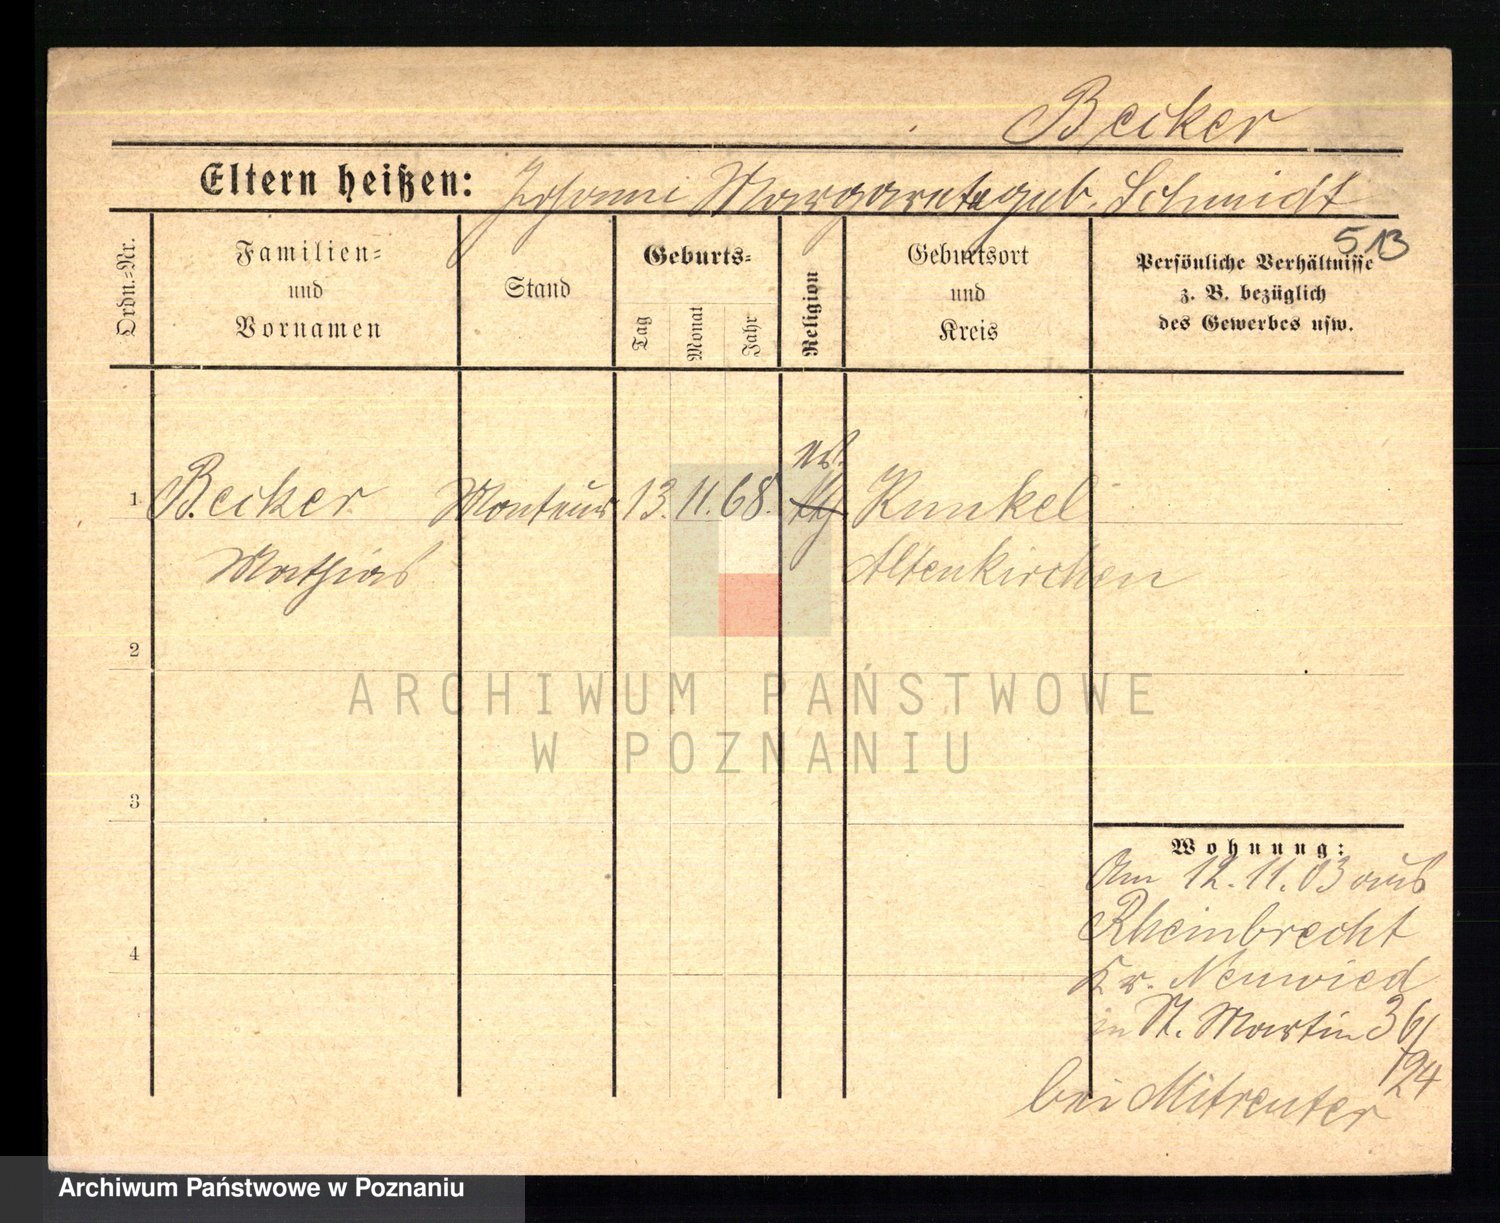 Becker
Eltern heißen: Johann Margarete geb. Schmidt
513
Ordn.-Nr.
Familien- und Vornamen
Stand
Geburts-
Tag
Monat
Jahr
Religion
Geburtsort und Kreis
Persönliche Verhältnisse
z. B. bezüglich
des Gewerbes usw.
ev.
1 Becker Monteur 13. 11. 68. kth Runkel
Mathias Altenkirchen
2
ARCHIWUM PAŃSTWOWE
W POZNANIU
3
Wohnung:
Am 12.11.03 aus
Rheinbrecht
4
Kr. Neuwied
in St. Martin 36/
/24
bei Mitreuter
Archiwum Państwowe w Poznaniu